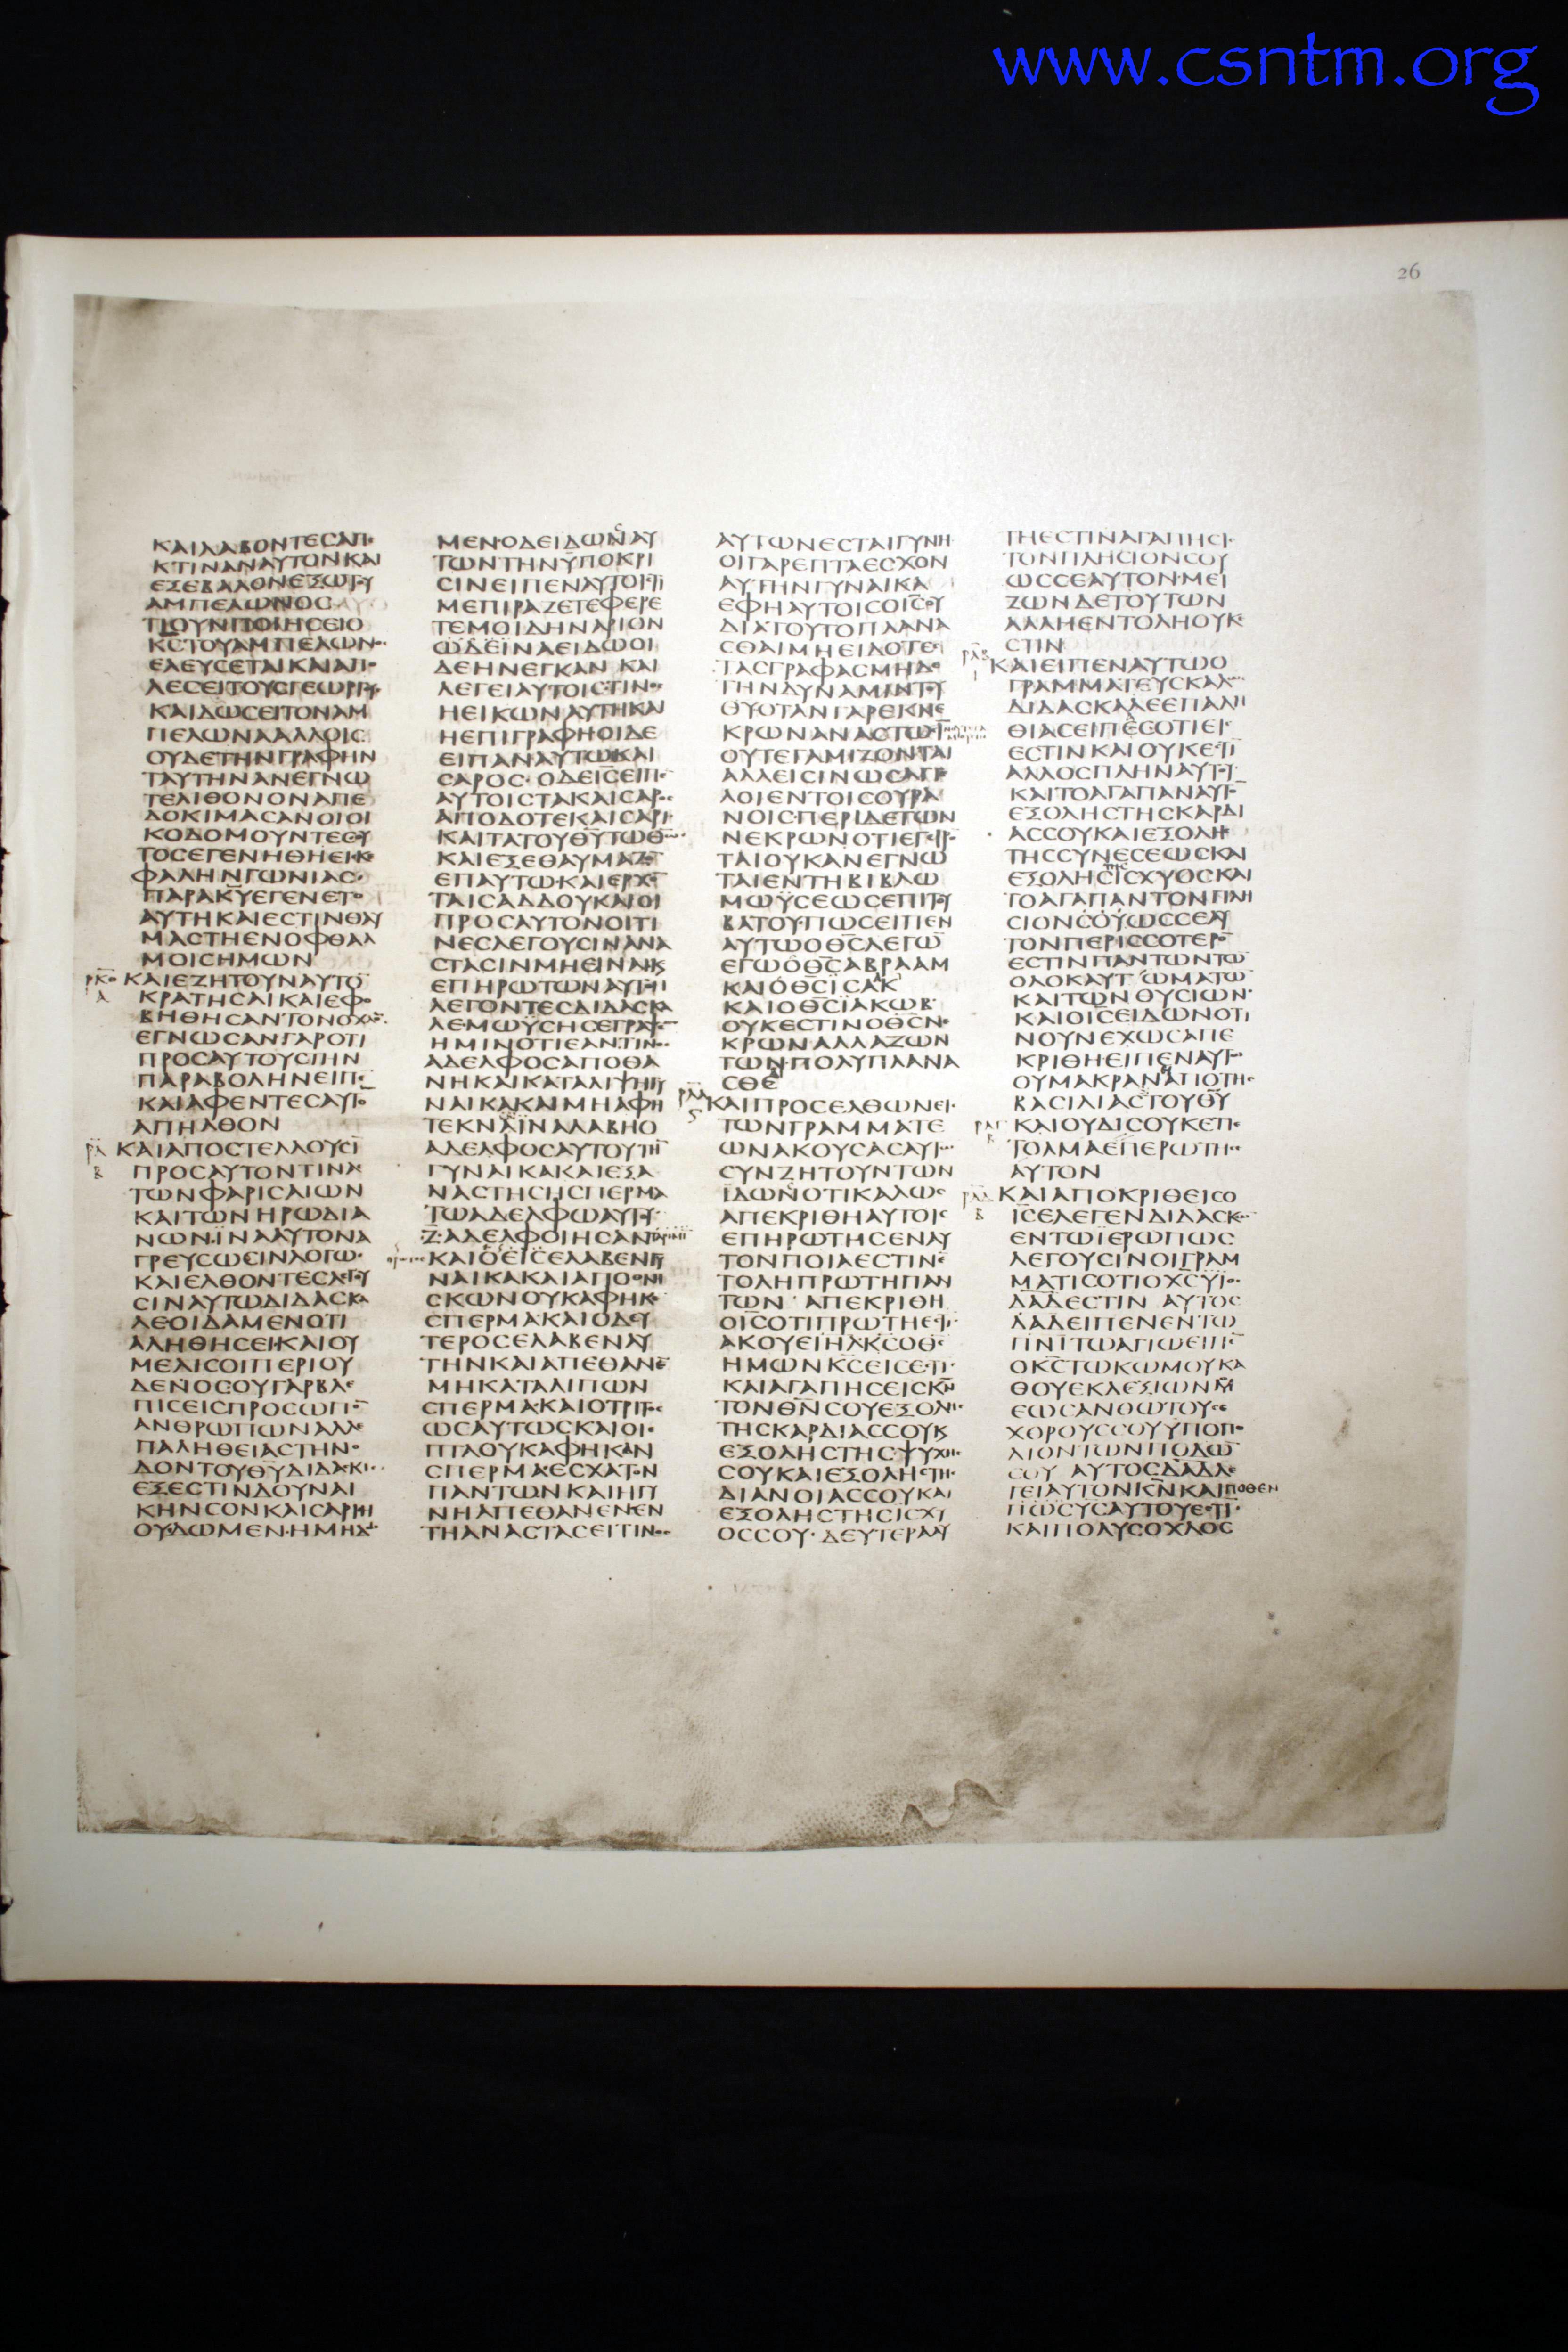 www.csntm.org
26
ΚΑΙΛΑΒΟΝΤΕϹΑΠΕ
ΚΤΙΝΑΝΑΥΤΟΝΚΑΙ
ΕΞΕΒΑΛΟΝΕΞΩΤΟΥ
ΑΜΠΕΛΩΝΟϹ
ΤΙΟΥΝΠΟΙΗϹΕΙΟ
ΚϹΤΟΥΑΜΠΕΛΩΝΟϹ
ΕΛΕΥϹΕΤΑΙΚΑΙΑΠΟ
ΛΕϹΕΙΤΟΥϹΓΕΩΡΓΟΥϹ
ΚΑΙΔΩϹΕΙΤΟΝΑΜ
ΠΕΛΩΝΑΑΛΛΟΙϹ
ΟΥΔΕΤΗΝΓΡΑΦΗΝ
ΤΑΥΤΗΝΑΝΕΓΝΩ
ΤΕΛΙΘΟΝΟΝΑΠΕ
ΔΟΚΙΜΑϹΑΝΟΙΟΙ
ΚΟΔΟΜΟΥΝΤΕϹΟΥ
ΤΟϹΕΓΕΝΗΘΗΕΙϹΚΕ
ΦΑΛΗΝΓΩΝΙΑϹ
ΠΑΡΑΚΥΕΓΕΝΕΤΟ
ΑΥΤΗΚΑΙΕϹΤΙΝΘΑΥ
ΜΑϹΤΗΕΝΟΦΘΑΛ
ΜΟΙϹΗΜΩΝ
ΚΑΙΕΖΗΤΟΥΝΑΥΤΟ
ΚΡΑΤΗϹΑΙΚΑΙΕΦΟ
ΒΗΘΗϹΑΝΤΟΝΟΧΛΟΝ
ΕΓΝΩϹΑΝΓΑΡΟΤΙ
ΠΡΟϹΑΥΤΟΥϹΤΗΝ
ΠΑΡΑΒΟΛΗΝΕΙΠΕ
ΚΑΙΑΦΕΝΤΕϹΑΥΤΟ
ΑΠΗΛΘΟΝ
ΚΑΙΑΠΟϹΤΕΛΛΟΥϹΙ
ΠΡΟϹΑΥΤΟΝΤΙΝΑϹ
ΤΩΝΦΑΡΙϹΑΙΩΝ
ΚΑΙΤΩΝΗΡΩΔΙΑ
ΝΩΝΪΝΑΑΥΤΟΝΑ
ΓΡΕΥϹΩϹΕΙΝΛΟΓΩ
ΚΑΙΕΛΘΟΝΤΕϹΛΕΓΟΥ
ϹΙΝΑΥΤΩΔΙΔΑϹΚΑ
ΛΕΟΙΔΑΜΕΝΟΤΙ
ΑΛΗΘΗϹΕΙΚΑΙΟΥ
ΜΕΛΙϹΟΙΠΕΡΙΟΥ
ΔΕΝΟϹΟΥΓΑΡΒΛΕ
ΠΙϹΕΙϹΠΡΟϹΩΠΟ
ΑΝΘΡΩΠΩΝΑΛΛΕ
ΠΑΛΗΘΕΙΑϹΤΗΝΟ
ΔΟΝΤΟΥΘΥΔΙΔΑϹΚΙϹ
ΕΞΕϹΤΙΝΔΟΥΝΑΙ
ΚΗΝϹΟΝΚΑΙϹΑΡΙΗ
ΟΥΔΩΜΕΝΗΜΗΔΩ
ΜΕΝΟΔΕΙΔΩΝΑΥ
ΤΩΝΤΗΝΫΠΟΚΡΙ
ϹΙΝΕΙΠΕΝΑΥΤΟΙϹΤΙ
ΜΕΠΙΡΑΖΕΤΕΦΕΡΕ
ΤΕΜΟΙΔΗΝΑΡΙΟΝ
ΩΔΕΪΝΑΕΙΔΩΟΙ
ΔΕΗΝΕΓΚΑΝ ΚΑΙ
ΛΕΓΕΙΑΥΤΟΙϹΤΙΝΟϹ
ΗΕΙΚΩΝΑΥΤΗΚΑΙ
ΗΕΠΙΓΡΑΦΗΟΙΔΕ
ΕΙΠΑΝΑΥΤΩΚΑΙ
ϹΑΡΟϹ ΟΔΕΙϹΕΙΠΕ
ΑΥΤΟΙϹΤΑΚΑΙϹΑΡΟϹ
ΑΠΟΔΟΤΕΚΑΙϹΑΡΙ
ΚΑΙΤΑΤΟΥΘΥΤΩΘΩ
ΚΑΙΕΞΕΘΑΥΜΑΖΟ
ΕΠΑΥΤΩΚΑΙΕΡΧΟ
ΤΑΙϹΑΔΔΟΥΚΑΙΟΙ
ΠΡΟϹΑΥΤΟΝΟΙΤΙ
ΝΕϹΛΕΓΟΥϹΙΝΑΝΑ
ϹΤΑϹΙΝΜΗΕΙΝΑΙΚ
ΕΠΗΡΩΤΩΝΑΥΤΟ
ΛΕΓΟΝΤΕϹΔΙΔΑϹΚΑ
ΛΕΜΩΫϹΗϹΕΓΡΑΨΕ
ΗΜΙΝΟΤΙΕΑΝΤΙΝΟϹ
ΑΔΕΛΦΟϹΑΠΟΘΑ
ΝΗΚΑΙΚΑΤΑΛΙΨΗΓΥ
ΝΑΙΚΑΚΑΙΜΗΑΦΗ
ΤΕΚΝΑΪΝΑΛΑΒΗΟ
ΑΔΕΛΦΟϹΑΥΤΟΥΤΗ
ΓΥΝΑΙΚΑΚΑΙΕΞΑ
ΝΑϹΤΗϹΗϹΠΕΡΜΑ
ΤΩΑΔΕΛΦΩΑΥΤΟΥ
ΖΑΔΕΛΦΟΙΗϹΑΝ
ΚΑΙΟΕΙϹΕΛΑΒΕΝΓΥ
ΝΑΙΚΑΚΑΙΑΠΟΘΝΗ
ϹΚΩΝΟΥΚΑΦΗΚΕ
ϹΠΕΡΜΑΚΑΙΟΔΕΥ
ΤΕΡΟϹΕΛΑΒΕΝΑΥ
ΤΗΝΚΑΙΑΠΕΘΑΝΕ
ΜΗΚΑΤΑΛΙΠΩΝ
ϹΠΕΡΜΑΚΑΙΟΤΡΙΤΟϹ
ΩϹΑΥΤΩϹΚΑΙΟΙ
ΠΤΑΟΥΚΑΦΗΚΑΝ
ϹΠΕΡΜΑΕϹΧΑΤΟΝ
ΠΑΝΤΩΝΚΑΙΗΓΥ
ΝΗΑΠΕΘΑΝΕΝΕΝ
ΤΗΑΝΑϹΤΑϹΕΙΤΙΝΟϹ
ΑΥΤΩΝΕϹΤΑΙΓΥΝΗ
ΟΙΓΑΡΕΠΤΑΕϹΧΟΝ
ΑΥΤΗΝΓΥΝΑΙΚΑ
ΕΦΗΑΥΤΟΙϹΟΙϹΟΥ
ΔΙΑΤΟΥΤΟΠΛΑΝΑ
ϹΘΑΙΜΗΕΙΔΟΤΕϹ
ΤΑϹΓΡΑΦΑϹΜΗΔΕ
ΤΗΝΔΥΝΑΜΙΝΤΟΥ
ΘΥΟΤΑΝΓΑΡΕΚΝΕ
ΚΡΩΝΑΝΑϹΤΩϹΙ
ΟΥΤΕΓΑΜΙΖΟΝΤΑΙ
ΑΛΛΕΙϹΙΝΩϹΑΓΓΕ
ΛΟΙΕΝΤΟΙϹΟΥΡΑ
ΝΟΙϹΠΕΡΙΔΕΤΩΝ
ΝΕΚΡΩΝΟΤΙΕΓΕΙΡΟ
ΤΑΙΟΥΚΑΝΕΓΝΩ
ΤΑΙΕΝΤΗΒΙΒΛΩ
ΜΩΫϹΕΩϹΕΠΙΤΟΥ
ΒΑΤΟΥΠΩϹΕΙΠΕΝ
ΑΥΤΩΟΘϹΛΕΓΩ
ΕΓΩΟΘϹΑΒΡΑΑΜ
ΚΑΙΟΘϹΪϹΑΚ
ΚΑΙΟΘϹΪΑΚΩΒ
ΟΥΚΕϹΤΙΝΟΘϹΝΕ
ΚΡΩΝΑΛΛΑΖΩΝ
ΤΩΝΠΟΛΥΠΛΑΝΑ
ϹΘΕ
ΚΑΙΠΡΟϹΕΛΘΩΝΕΙϹ
ΤΩΝΓΡΑΜΜΑΤΕ
ΩΝΑΚΟΥϹΑϹΑΥΤΩ
ϹΥΝΖΗΤΟΥΝΤΩΝ
ΪΔΩΝΟΤΙΚΑΛΩϹ
ΑΠΕΚΡΙΘΗΑΥΤΟΙϹ
ΕΠΗΡΩΤΗϹΕΝΑΥ
ΤΟΝΠΟΙΑΕϹΤΙΝΕ
ΤΟΛΗΠΡΩΤΗΠΑΝ
ΤΩΝ ΑΠΕΚΡΙΘΗ
ΟΙϹΟΤΙΠΡΩΤΗΕϹΤΙ
ΑΚΟΥΕΙΗΛΚϹΟΘϹ
ΗΜΩΝΚϹΕΙϹΕϹΤΙ
ΚΑΙΑΓΑΠΗϹΕΙϹΚΝ
ΤΟΝΘΝϹΟΥΕΞΟΛΗϹ
ΤΗϹΚΑΡΔΙΑϹϹΟΥΚ
ΕΞΟΛΗϹΤΗϹΨΥΧΗϹ
ϹΟΥΚΑΙΕΞΟΛΗϹΤΗϹ
ΔΙΑΝΟΙΑϹϹΟΥΚΑΙ
ΕΞΟΛΗϹΤΗϹΙϹΧΥ
ΟϹϹΟΥ ΔΕΥΤΕΡΑΑΥ
ΤΗΕϹΤΙΝΑΓΑΠΗϹΙϹ
ΤΟΝΠΛΗϹΙΟΝϹΟΥ
ΩϹϹΕΑΥΤΟΝΜΕΙ
ΖΩΝΔΕΤΟΥΤΩΝ
ΑΛΛΗΕΝΤΟΛΗΟΥΚΕ
ϹΤΙΝ
ΚΑΙΕΙΠΕΝΑΥΤΩΟ
ΓΡΑΜΜΑΤΕΥϹΚΑΛΩϹ
ΔΙΔΑϹΚΑΛΕΕΠΑΛΗ
ΘΙΑϹΕΙΠΕϹΟΤΙΕΙϹ
ΕϹΤΙΝΚΑΙΟΥΚΕϹΤΙ
ΑΛΛΟϹΠΛΗΝΑΥΤΟΥ
ΚΑΙΤΟΑΓΑΠΑΝΑΥΤΟ
ΕΞΟΛΗϹΤΗϹΚΑΡΔΙ
ΑϹϹΟΥΚΑΙΕΞΟΛΗϹ
ΤΗϹϹΥΝΕϹΕΩϹΚΑΙ
ΕΞΟΛΗϹΙϹΧΥΟϹΚΑΙ
ΤΟΑΓΑΠΑΝΤΟΝΠΛΗ
ϹΙΟΝϹΟΥΩϹϹΕΑΥ
ΤΟΝΠΕΡΙϹϹΟΤΕΡΟ
ΕϹΤΙΝΠΑΝΤΩΝΤΩ
ΟΛΟΚΑΥΤΩΜΑΤΩ
ΚΑΙΤΩΝΘΥϹΙΩΝ
ΚΑΙΟΙϹΕΙΔΩΝΟΤΙ
ΝΟΥΝΕΧΩϹΑΠΕ
ΚΡΙΘΗΕΙΠΕΝΑΥΤΩ
ΟΥΜΑΚΡΑΝΑΠΟΤΗϹ
ΒΑϹΙΛΙΑϹΤΟΥΘΥ
ΚΑΙΟΥΔΙϹΟΥΚΕΤΙ
ΤΟΛΜΑΕΠΕΡΩΤΗϹΑΙ
ΑΥΤΟΝ
ΚΑΙΑΠΟΚΡΙΘΕΙϹΟ
ΙϹΕΛΕΓΕΝΔΙΔΑϹΚΩ
ΕΝΤΩΪΕΡΩΠΩϹ
ΛΕΓΟΥϹΙΝΟΙΓΡΑΜ
ΜΑΤΙϹΟΤΙΟΧϹΥΪΟϹ
ΔΑΔΕϹΤΙΝ ΑΥΤΟϹ
ΔΑΔΕΙΠΕΝΕΝΤΩ
ΠΝΙΤΩΑΓΙΩΕΙΠΕ
ΟΚϹΤΩΚΩΜΟΥΚΑ
ΘΟΥΕΚΔΕΞΙΩΝΜ
ΕΩϹΑΝΘΩΤΟΥϹΕ
ΧΘΡΟΥϹϹΟΥΫΠΟΠΟ
ΔΙΟΝΤΩΝΠΟΔΩ
ϹΟΥ ΑΥΤΟϹΔΑΔΛΕ
ΓΕΙΑΥΤΟΝΚΝΚΑΙΠΟΘΕΝ
ΠΩϹΥϹΑΥΤΟΥΕϹΤΙ
ΚΑΙΠΟΛΥϹΟΧΛΟϹ